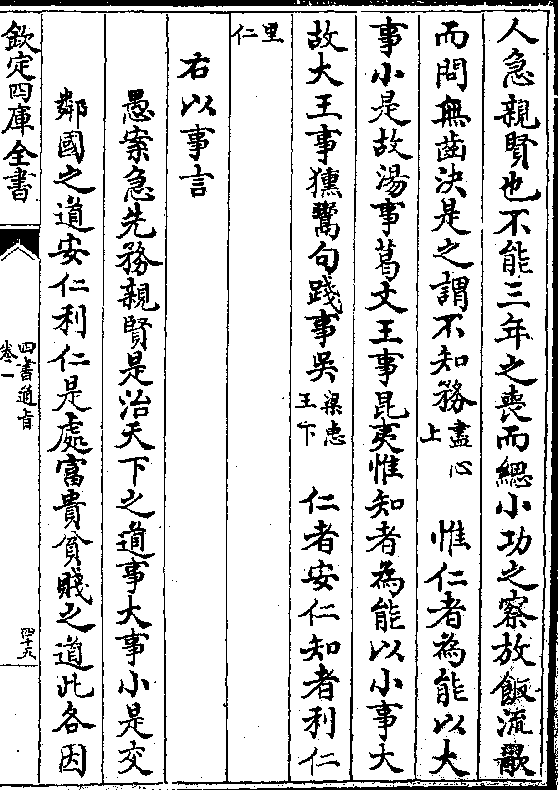 人急親賢也不能三年之喪而緦小功之察放飯流歠
而問無齒決是之謂不知務盡心上　惟仁者為能以大
事小是故湯事葛文王事昆夷惟知者為能以小事大
故大王事獯鬻句踐事吳梁惠王下　仁者安仁知者利仁
里仁
右以事言
愚案急先務親賢是治天下之道事大事小是交
鄰國之道安仁利仁是處富貴貧賤之道此各因
欽定四庫全書
四書通旨
卷一